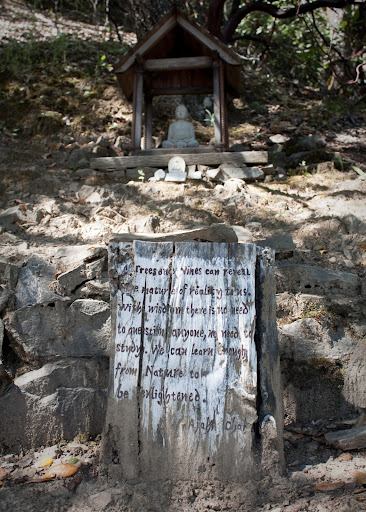 Trees and Vines can reveal
the nature of reality to us.
With wisdom there is no need
to question anyone, no need to
study. We can learn enough
from Nature to
be enlightened.
Ajahn Chah